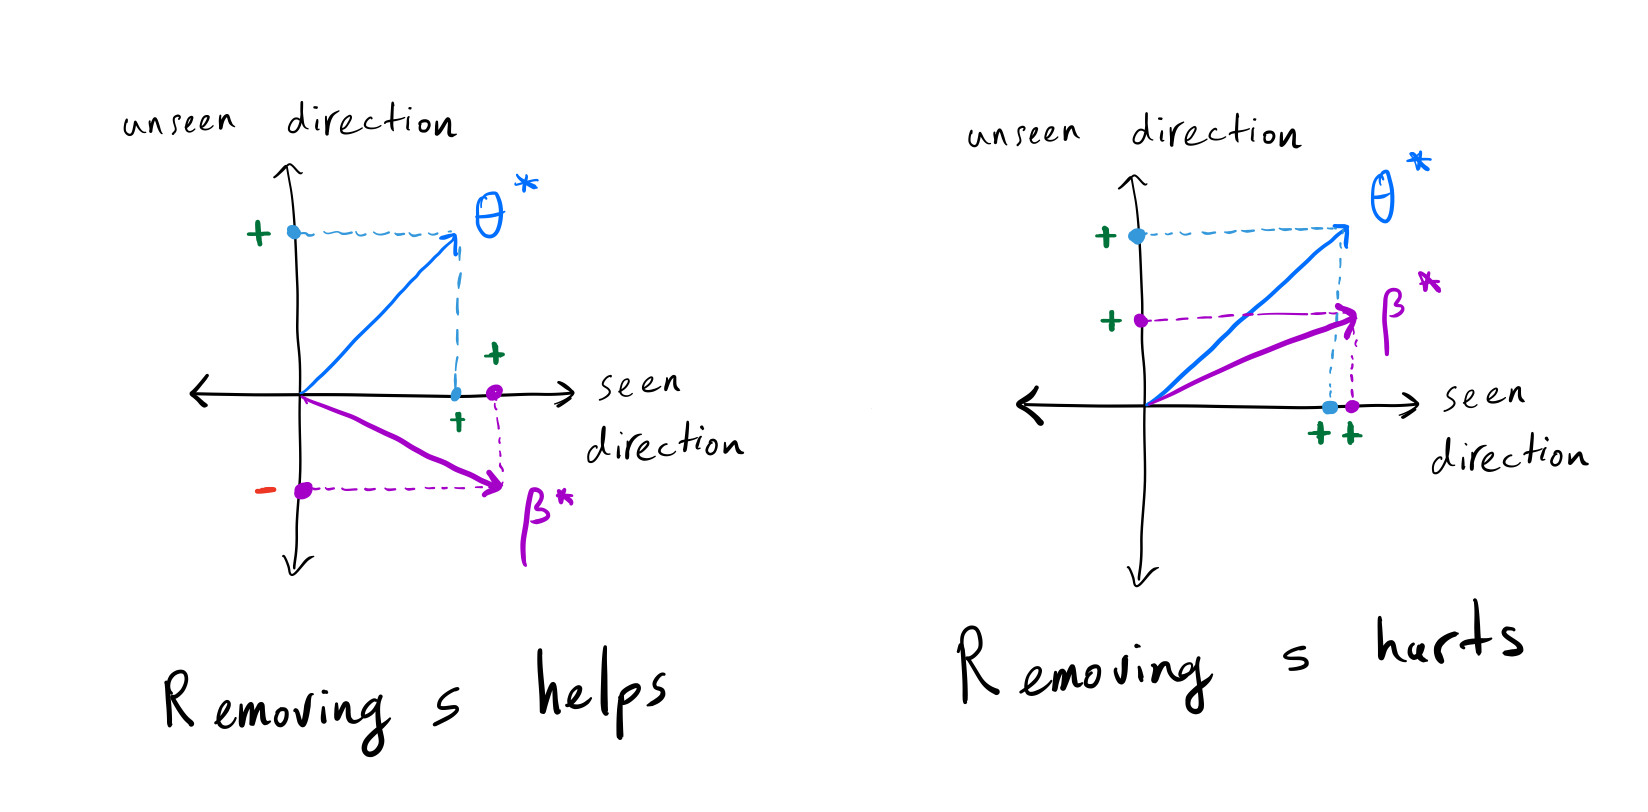 unseen direction
θ*
+
+
seen
+
direction
-
β*
Removing s helps
unseen direction
θ*
+
β*
+
seen
+ +
direction
Removing s hurts